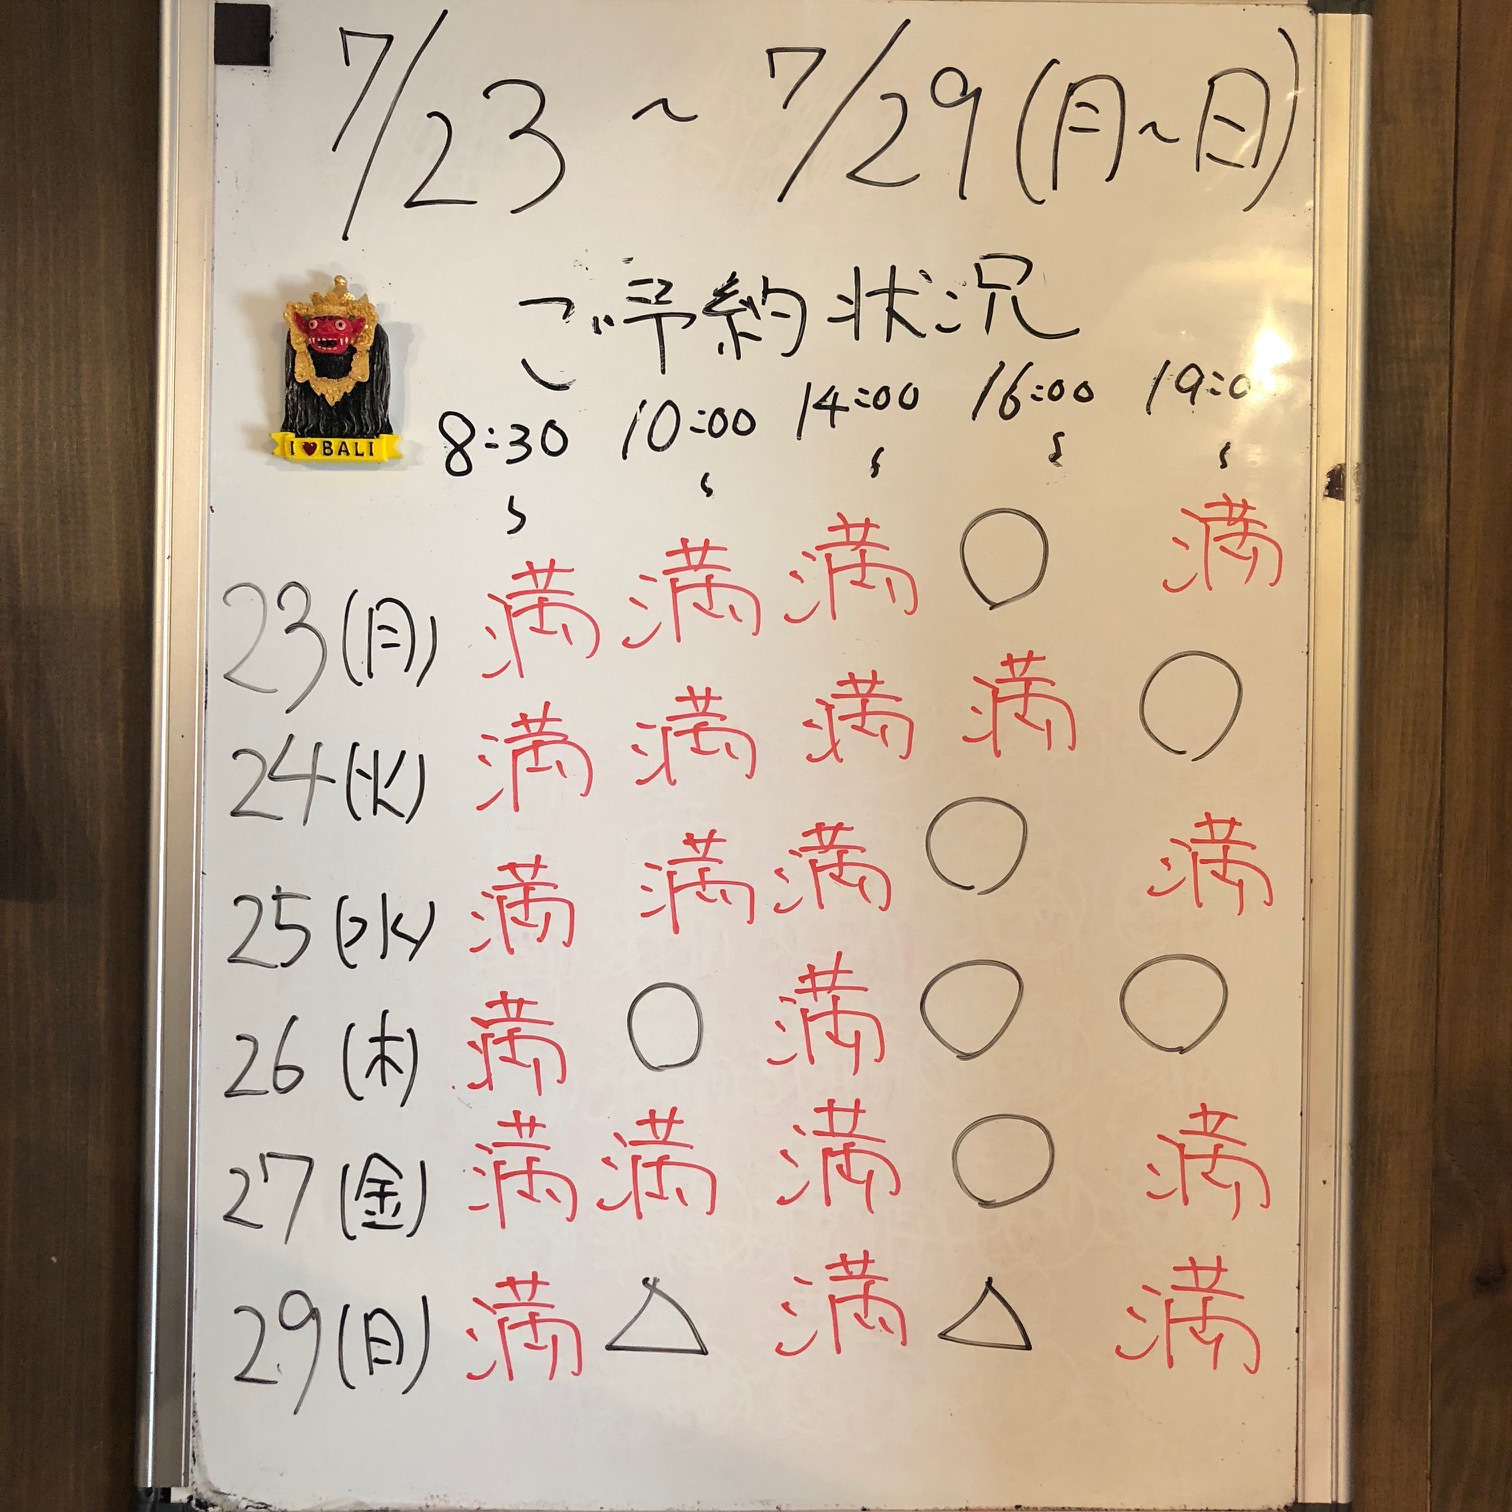 7/23 ~ 7/29 (月~日)
ご予約状況
I ♥ BALI
8:30~ 10:00~ 14:00~ 16:00~ 19:00~
23(月) 満 満 満 ○ 満
24(火) 満 満 満 満 ○
25(水) 満 満 満 ○ 満
26(木) 満 ○ 満 ○ ○
27(金) 満 満 満 ○ 満
29(日) 満 △ 満 △ 満